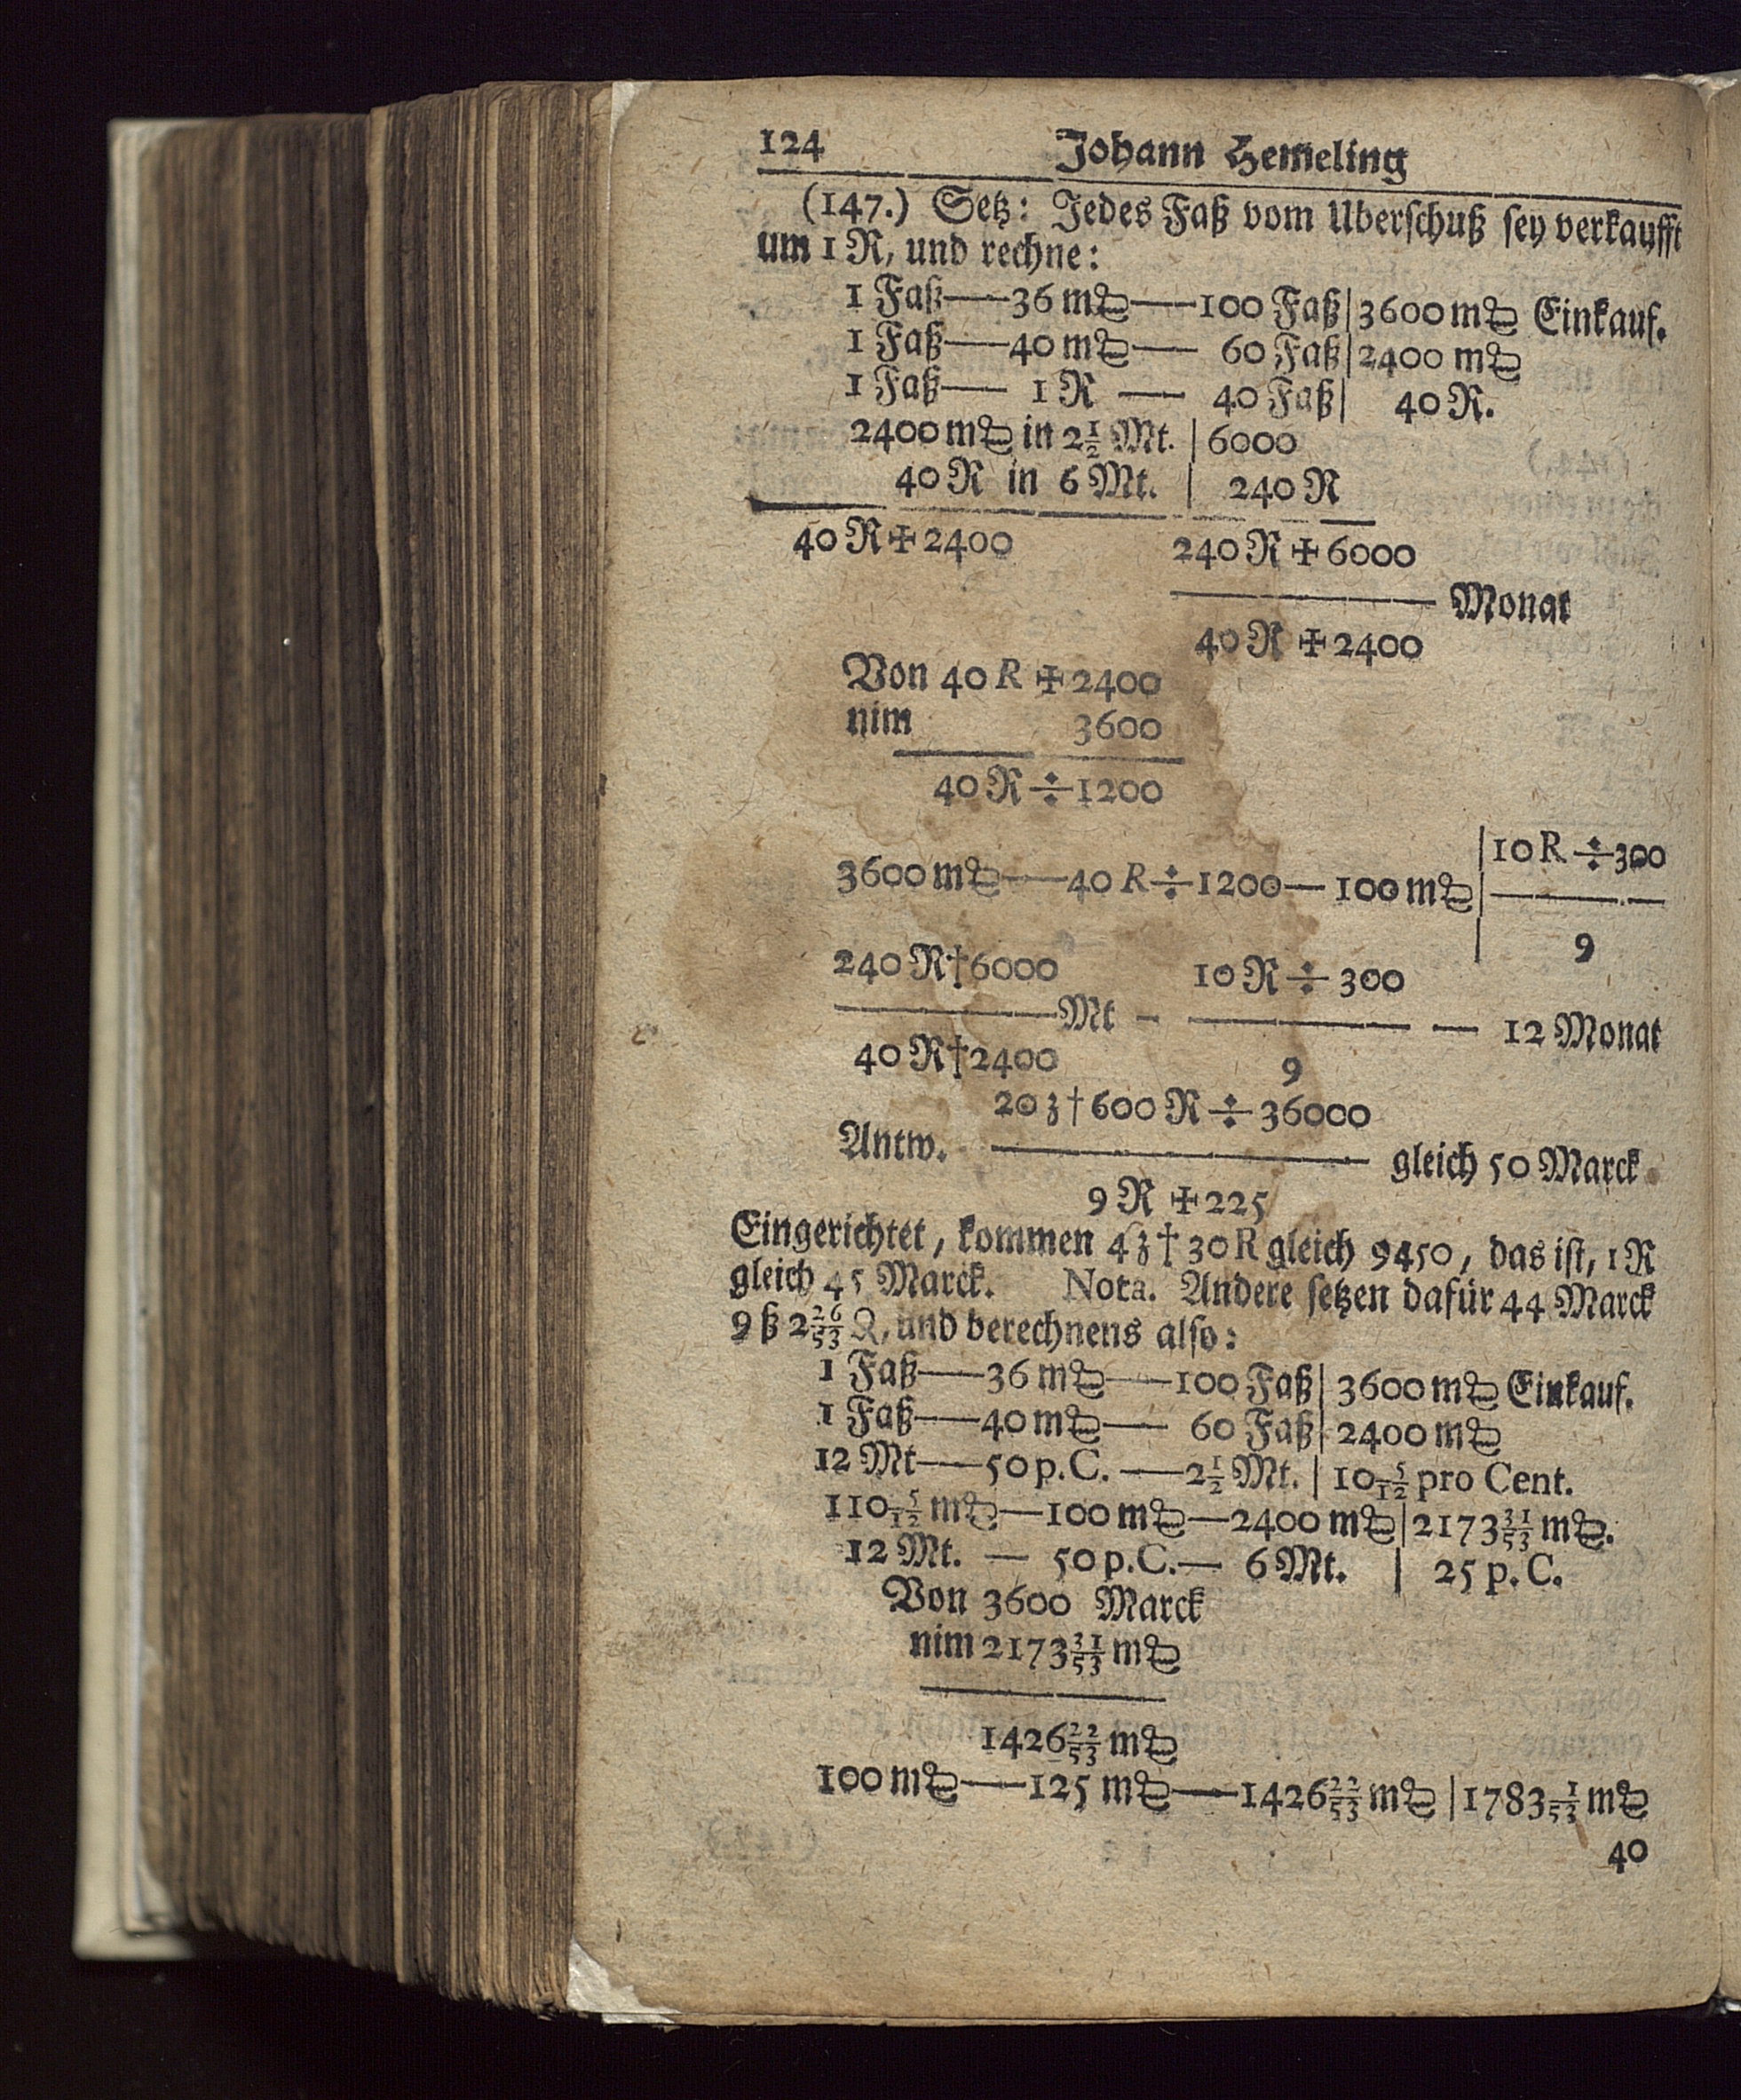 124 Johann Hemeling
(147.) Setz: Jedes Faß vom Uberschuß sey verkaufft
um 1 R, und rechne:
1 Faß—36 m℔—100 Faß|3600 m℔ Einkauf.
1 Faß—40 m℔— 60 Faß|2400 m℔
1 Faß— 1 R — 40 Faß| 40 R.
2400 m℔ in 2 1/2 Mt. | 6000
40 R in 6 Mt. | 240 R
40 R + 2400 240 R + 6000
Monat
40 R + 2400
Von 40 R + 2400
nim 3600
40 R ÷ 1200
|10 R ÷ 300
3600 m℔—40 R ÷ 1200—100 m℔|
| 9
240 R † 6000 10 R ÷ 300
Mt - — 12 Monat
40 R † 2400 9
20 ʒ † 600 R ÷ 36000
Antw. gleich 50 Marck
9 R + 225
Eingerichtet, kommen 4 ʒ † 30 R gleich 9450, das ist, 1 R
gleich 45 Marck. Nota. Andere setzen dafür 44 Marck
9 ß 2 26/53 ₰, und berechnens also:
1 Faß—36 m℔—100 Faß| 3600 m℔ Einkauf.
1 Faß—40 m℔— 60 Faß| 2400 m℔
12 Mt—50 p. C. —2 1/2 Mt. | 10 5/12 pro Cent.
110 5/12 m℔—100 m℔—2400 m℔|2173 31/53 m℔.
12 Mt. — 50 p. C.— 6 Mt. | 25 p. C.
Von 3600 Marck
nim 2173 31/53 m℔
1426 22/53 m℔
100 m℔—125 m℔—1426 22/53 m℔ |1783 1/53 m℔
40